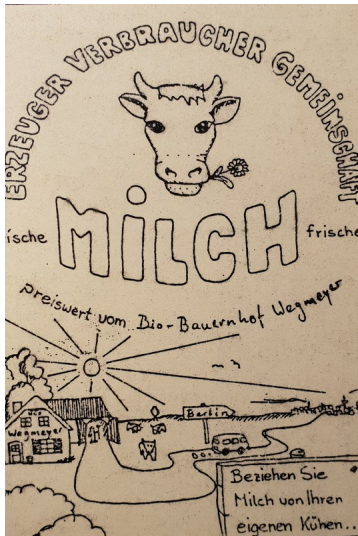 ERZEUGER VERBRAUCHER GEMEINSCHAFT
ische MiLCH frische
preiswert vom Bio-Bauernhof Wegmeyer
Berlin
Wegmeyer
Beziehen Sie
Milch von Ihren
eigenen Kühen..